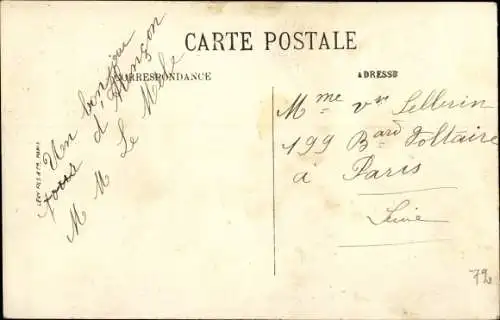 CARTE POSTALE
CORRESPONDANCE
ADRESSE
Un bonjour
tous d'Alençon
M M Le
LEVY FILS & Cie, PARIS
Mme vve Lellerin
199 Bard Voltaire
à Paris
Seine
72